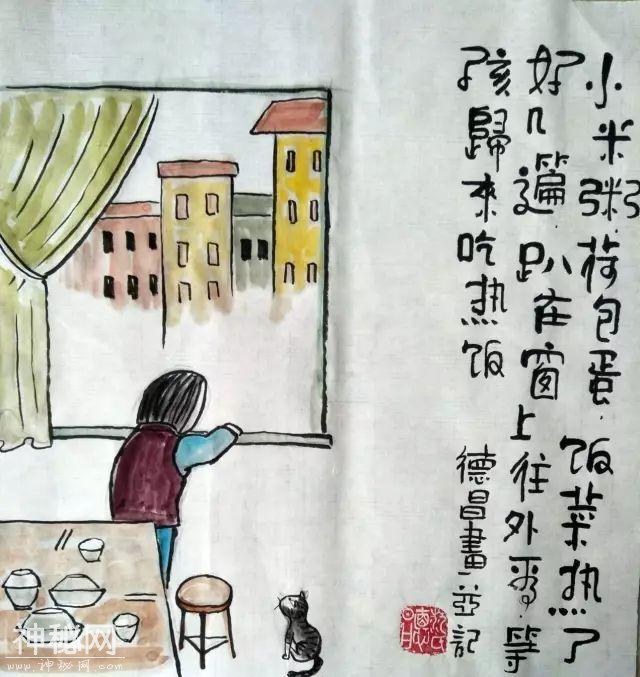 小米粥.荷包蛋.饭菜热了
好几遍.趴在窗上往外看.等
孩歸来吃热饭
德昌畫並記
神秘网
www.神秘网.com